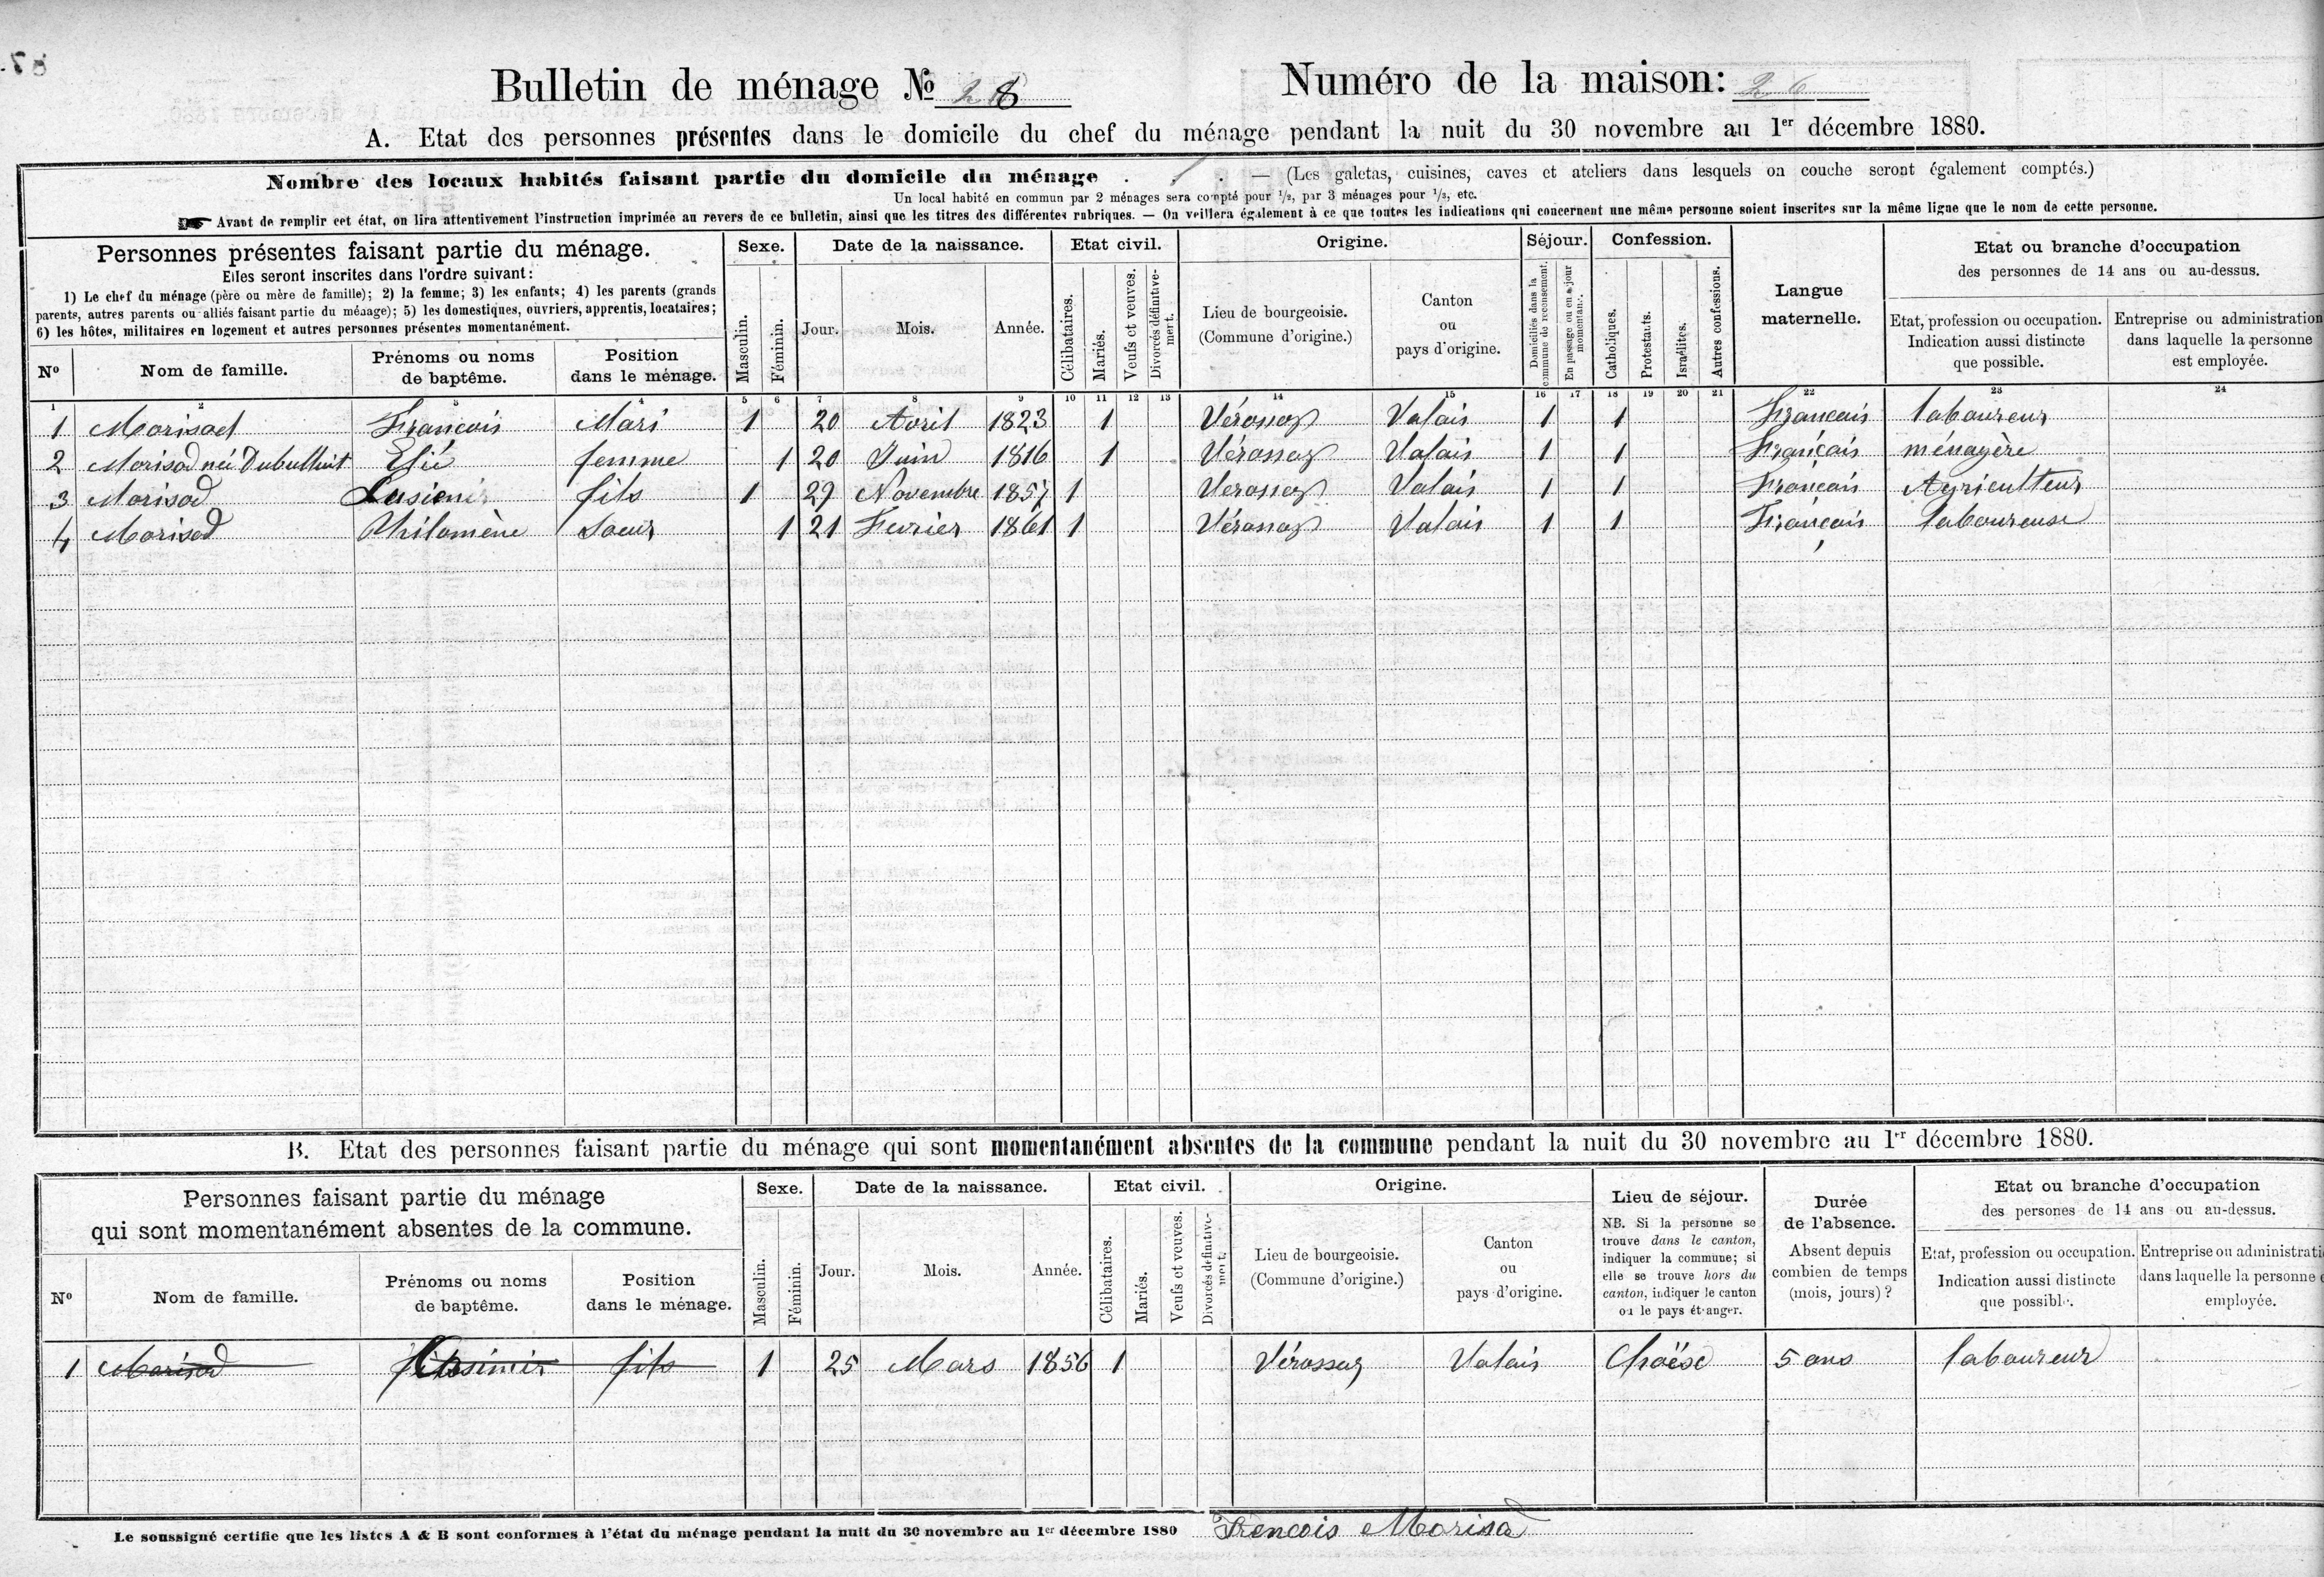 Bulletin de ménage № 28
Numéro de la maison: 26
A. Etat des personnes présentes dans le domicile du chef du ménage pendant la nuit du 30 novembre au 1er décembre 1880.
Nombre des locaux habités faisant partie du domicile du ménage . 1 . — (Les galetas, cuisines, caves et ateliers dans lesquels on couche seront également comptés.)
Un local habité en commun par 2 ménages sera compté pour 1/2, par 3 ménages pour 1/3, etc.
Avant de remplir cet état, on lira attentivement l'instruction imprimée au revers de ce bulletin, ainsi que les titres des différentes rubriques. — On veillera également à ce que toutes les indications qui concernent une même personne soient inscrites sur la même ligne que le nom de cette personne.
Personnes présentes faisant partie du ménage.
Elles seront inscrites dans l'ordre suivant:
1) Le chef du ménage (père ou mère de famille); 2) la femme; 3) les enfants; 4) les parents (grands
parents, autres parents ou alliés faisant partie du ménage); 5) les domestiques, ouvriers, apprentis, locataires;
6) les hôtes, militaires en logement et autres personnes présentes momentanément.
Nº
Nom de famille.
Prénoms ou noms
de baptême.
Position
dans le ménage.
Sexe.
Masculin.
Féminin.
Date de la naissance.
Jour.
Mois.
Année.
Etat civil.
Célibataires.
Mariés.
Veufs et veuves.
Divorcés définitive-
ment.
Origine.
Lieu de bourgeoisie.
(Commune d'origine.)
Canton
ou
pays d'origine.
Séjour.
Domiciliés dans la
commune de recensement.
En passage ou en séjour
momentané.
Confession.
Catholiques.
Protestants.
Israélites.
Autres confessions.
Langue
maternelle.
Etat ou branche d'occupation
des personnes de 14 ans ou au-dessus.
Etat, profession ou occupation.
Indication aussi distincte
que possible.
Entreprise ou administration
dans laquelle la personne
est employée.
1 2 3 4 5 6 7 8 9 10 11 12 13 14 15 16 17 18 19 20 21 22 23 24
1 Morisod François Mari 1 20 Avril 1823 1 Vérossaz Valais 1 1 Francais laboureur
2 Morisod née Dubulluit femme 1 20 Juin 1816 1 Vérossaz Valais 1 1 Français ménagère
3 Morisod fils 1 29 Novembre 1857 1 Verossaz Valais 1 1 Français Agriculteur
4 Morisod Philomène Soeur 1 21 Fevrier 1861 1 Vérossaz Valais 1 1 Français laboureuse
B. Etat des personnes faisant partie du ménage qui sont momentanément absentes de la commune pendant la nuit du 30 novembre au 1r décembre 1880.
Personnes faisant partie du ménage
qui sont momentanément absentes de la commune.
Nº
Nom de famille.
Prénoms ou noms
de baptême.
Position
dans le ménage.
Sexe.
Masculin.
Féminin.
Date de la naissance.
Jour.
Mois.
Année.
Etat civil.
Célibataires.
Mariés.
Veufs et veuves.
Divorcés définitive-
ment.
Origine.
Lieu de bourgeoisie.
(Commune d'origine.)
Canton
ou
pays d'origine.
Lieu de séjour.
NB. Si la personne se
trouve dans le canton,
indiquer la commune; si
elle se trouve hors du
canton, indiquer le canton
ou le pays étranger.
Durée
de l'absence.
Absent depuis
combien de temps
(mois, jours)?
Etat ou branche d'occupation
des persones de 14 ans ou au-dessus.
Etat, profession ou occupation.
Indication aussi distincte
que possible.
Entreprise ou administrati
dans laquelle la personne
employée.
1 Morisod Casimir fils 1 25 Mars 1856 1 Vérossaz Valais 5 ans laboureur
Le soussigné certifie que les listes A & B sont conformes à l'état du ménage pendant la nuit du 30 novembre au 1er décembre 1880 Frencois Morisod